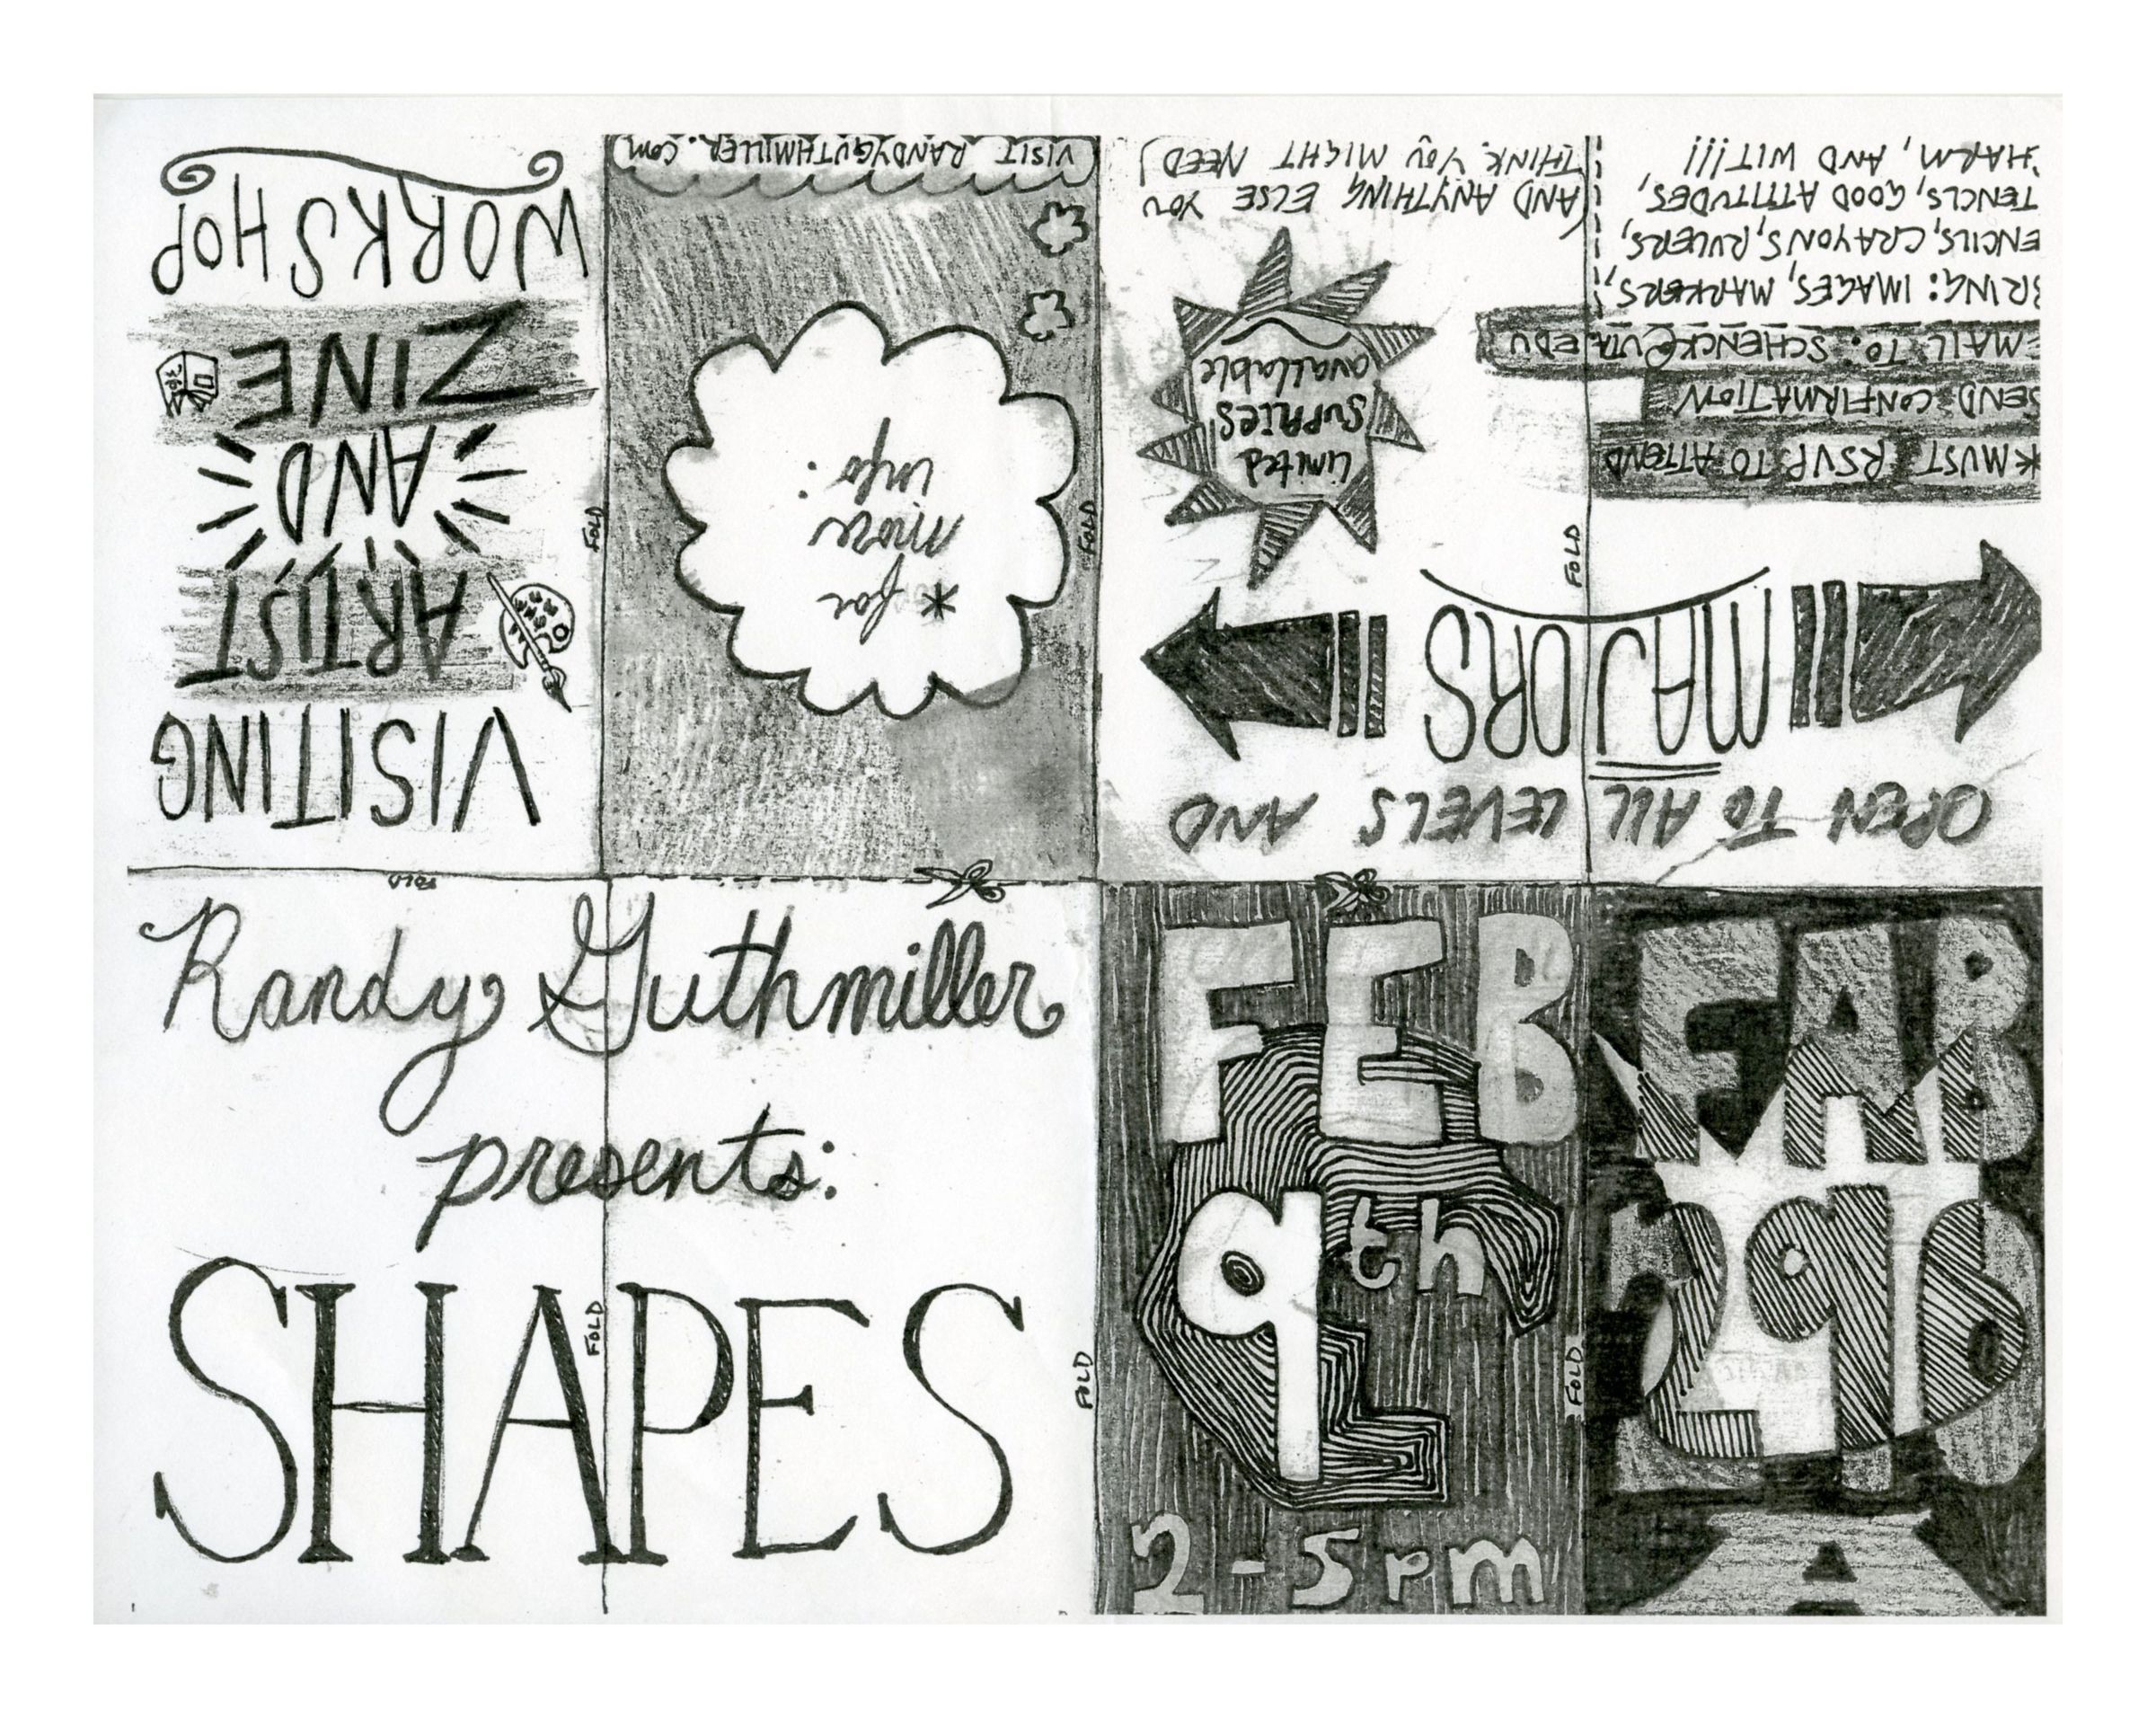 VISITING
ARTIST
AND
ZINE
WORKSHOP
FOLD
* for
more
info:
VISIT RANDYGUTHMILLER.COM
FOLD
OPEN TO ALL LEVELS AND
MAJORS
FOLD
*MUST RSVP TO ATTEND
SEND CONFIRMATION
EMAIL TO: SCHENCK@UTA.EDU
BRING: IMAGES, MARKERS,
ENCILS, CRAYONS, RULERS,
TENCLS, GOOD ATTITUDES,
HARM, AND WIT!!!
limited
supplies
available
(AND ANYTHING ELSE YOU
THINK YOU MIGHT NEED)
FOLD
Randy Guthmiller
presents:
SHAPES
FOLD
FOLD
FEB
9th
2-5pm
FOLD
FAB
A